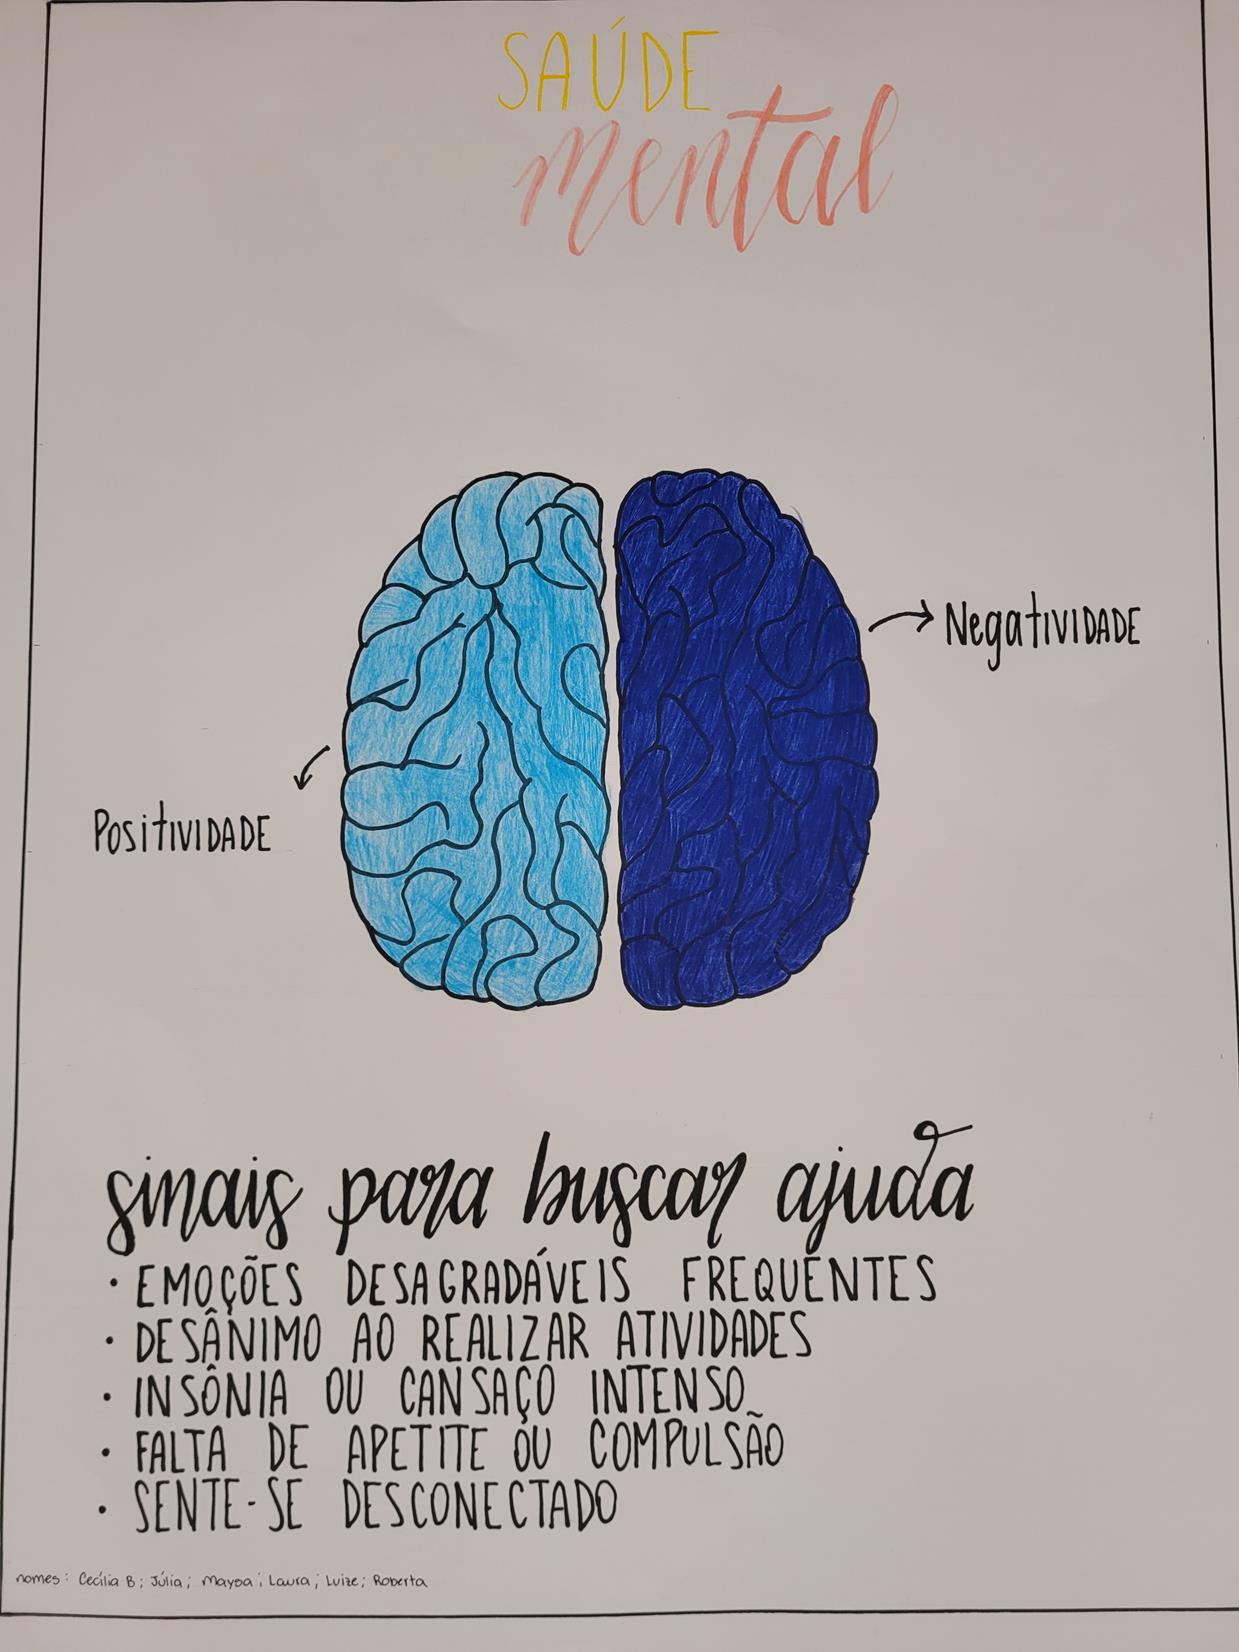 SAÚDE
mental
Negatividade
Positividade
sinais para buscar ajuda
• EMOÇÕES DESAGRADÁVEIS FREQUENTES
• DESÂNIMO AO REALIZAR ATIVIDADES
• INSÔNIA OU CANSAÇO INTENSO
• FALTA DE APETITE OU COMPULSÃO
• SENTE-SE DESCONECTADO
nomes: Cecília B; Júlia; Maysa; Laura; Luize; Roberta